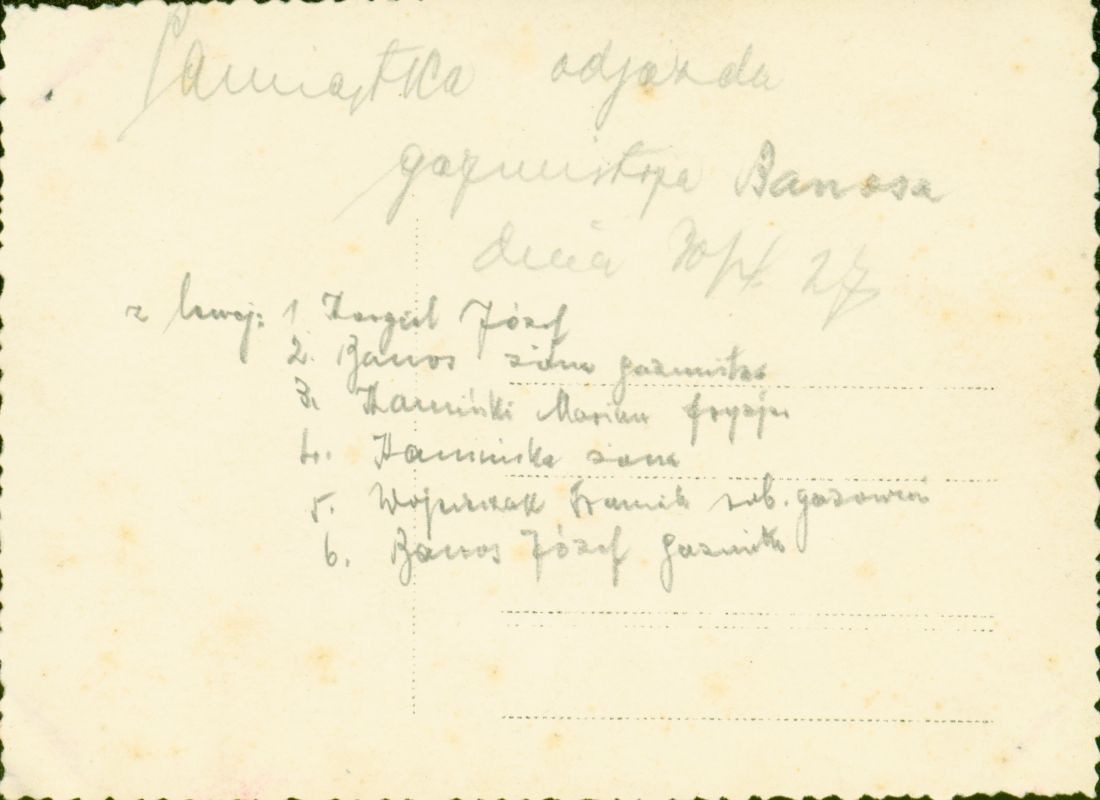 Pamiątka odjazdu
gazmistrza Banosa
dnia 27
z lewej: 1 Kargul Józef
2. Banos żona gazmistrza
3. Kamiński Marian fryzjer
4. Kamińska żona
5. Wojciczak Franciszek rob. gazowni
6. Banos Józef gazmistrz